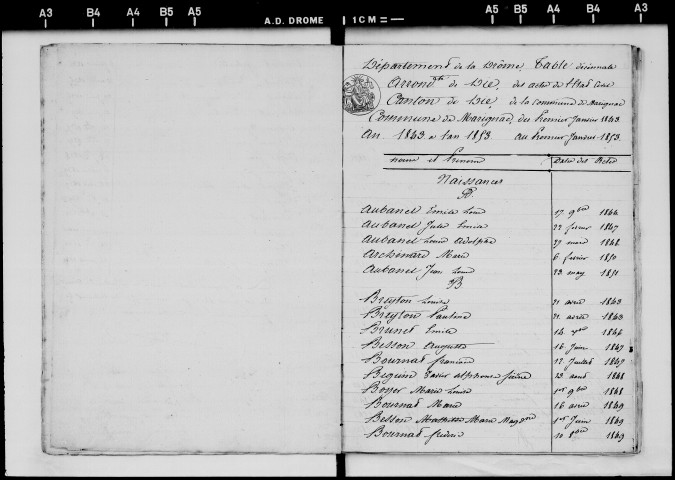 A3 B4 A4 B5 A5 A.D. DROME 1 CM A5 B5 A4 B4 A3
Département de la Drôme. Table décennale
Arrondt de Die, des actes de l'Etat Civil
Canton de Die, de la commune de Marignac
Commune de Marignac, du premier Janvier 1843
An 1843 a l'an 1853. au premier Janvier 1853.
noms et Prénoms Dates des Actes
Naissances
A
Aubanel Emile Louis 17 9bre 1844
Aubanel Jules Louis 22 février 1847
Aubanel Louis Adolphe 27 mars 1848
Archinard Marie 6 février 1850
Aubanel Jean Louis 23 may 1851
B
Breyton Louise 21 avril 1843
Breyton Pauline 21 avril 1843
Brunet Emile 14 1844
Besson Augustte 16 Juin 1847
Bournat 12 Juillet 1847
Beguin Xavier alphonse 28 août 1848
Marie Louise 1er 9bre 1848
Bournat Marie 16 avril 1849
Besson Mathilde Marie Magdne 1er Juin 1849
Bournat 10 8bre 1849